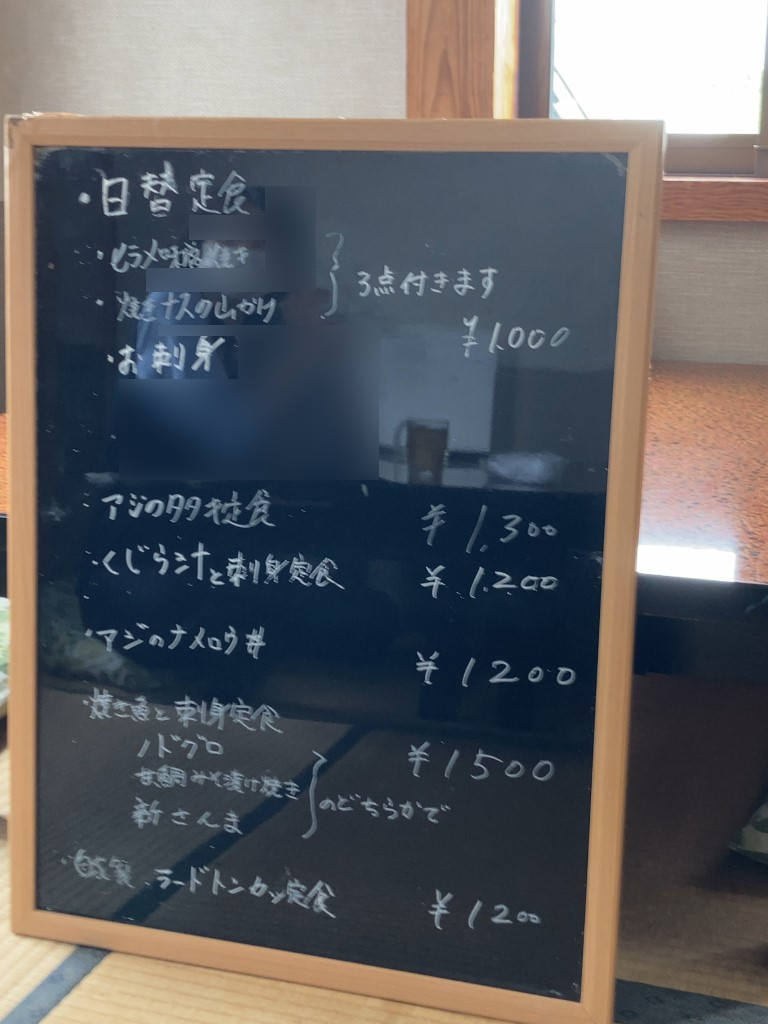 ・日替定食
・ヒラメの西京焼き
・焼きナスの山かけ
・お刺身
3点付きます
¥1,000
アジのタタキ定食 ¥1,300
・くじら汁と刺身定食 ¥1,200
・アジのナメロウ丼 ¥1200
・焼き魚と刺身定食 ¥1500
ノドグロ
甘鯛みそ漬け焼き
新さんま
のどちらかで
・自家製 ラードトンカツ定食 ¥1200